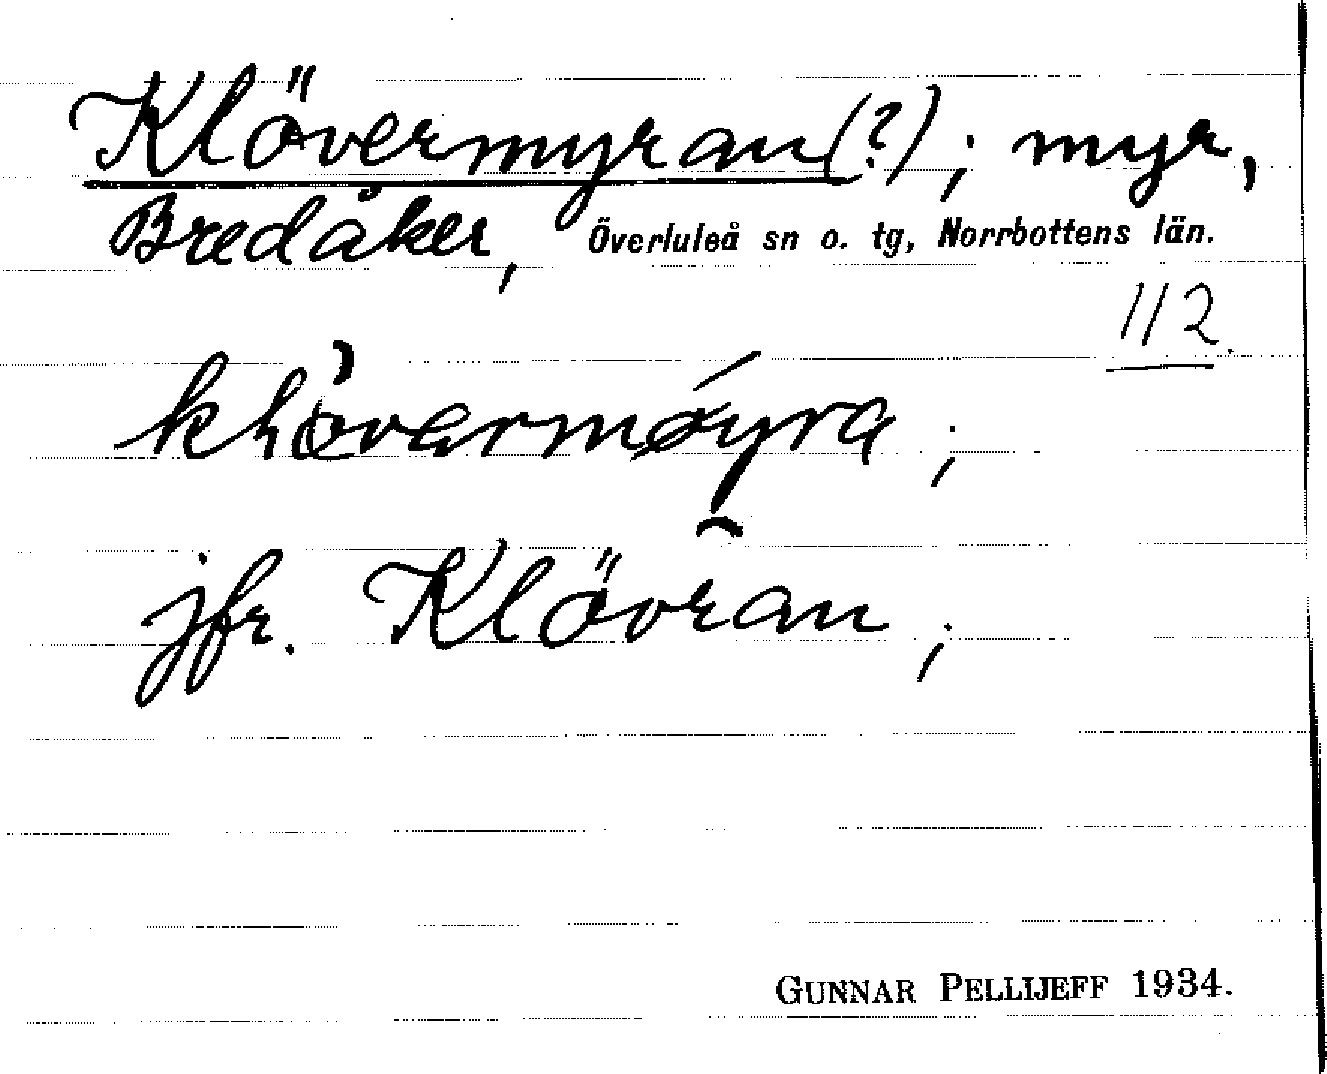 Klövermyran (?); myr,
Bredåker, Överluleå sn o. tg, Norrbottens län.
112.
jfr. Klövran;
GUNNAR PELLIJEFF 1934.